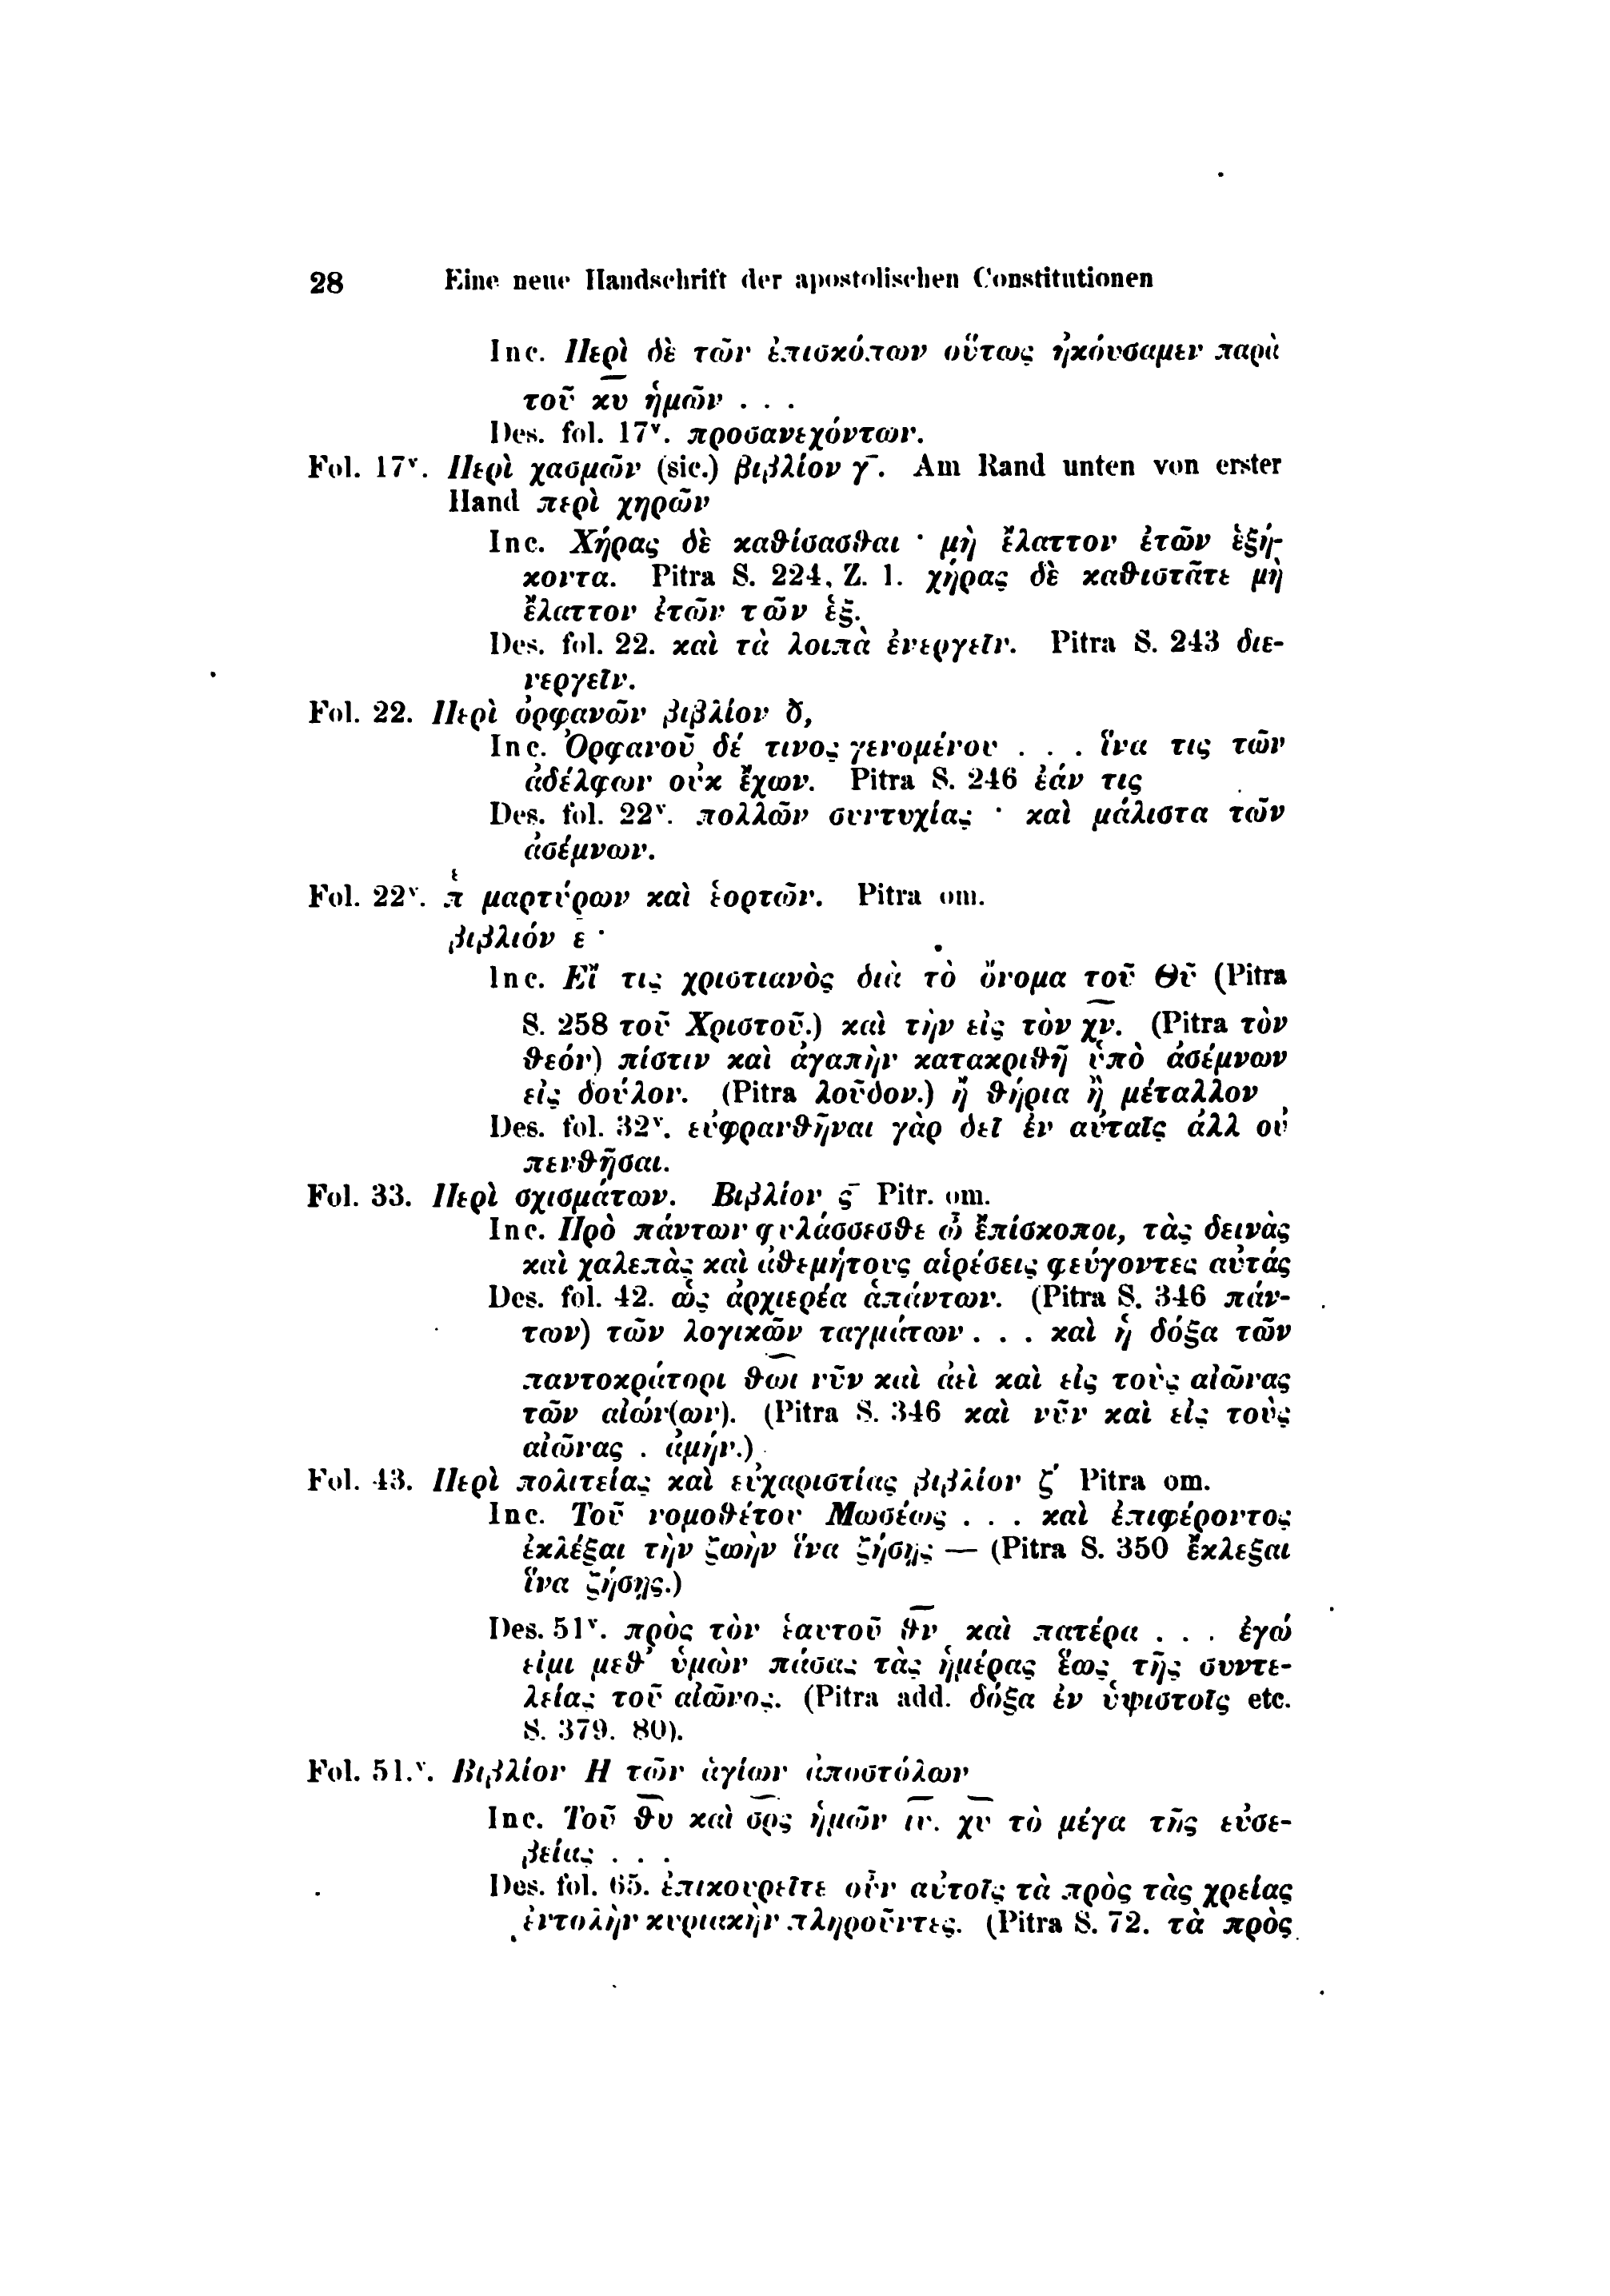 28 Eine neue Handschrift der apostolischen Constitutionen
Inc. Περὶ δὲ τῶν ἐπισκόπων οὕτως ἠκόυσαμεν παρὰ
τοῦ κ̅υ̅ ἡμῶν . . .
Des. fol. 17ᵛ. προσανεχόντων.
Fol. 17ᵛ. Περὶ χασμῶν (sic.) βιβλίον γ̅. Am Rand unten von erster
Hand περὶ χηρῶν
Inc. Χήρας δὲ καθίσασθαι · μὴ ἔλαττον ἐτῶν ἑξή-
κοντα. Pitra S. 224, Z. 1. χήρας δὲ καθιστᾶτε μὴ
ἔλαττον ἐτῶν τῶν ἑξ.
Des. fol. 22. καὶ τὰ λοιπὰ ἐνεργεῖν. Pitra S. 243 διε-
νεργεῖν.
Fol. 22. Περὶ ὀρφανῶν βιβλίον δ̅,
Inc. Ὀρφανοῦ δέ τινος γενομένου . . . ἵνα τις τῶν
ἀδέλφων οὐκ ἔχων. Pitra S. 246 ἐάν τις
Des. fol. 22ᵛ. πολλῶν συντυχίας · καὶ μάλιστα τῶν
ἀσέμνων.
Fol. 22ᵛ. π̔ε μαρτύρων καὶ ἑορτῶν. Pitra om.
βιβλιόν ε̅ ·
Inc. Εἴ τις χριστιανὸς διὰ τὸ ὄνομα τοῦ Θῦ (Pitra
S. 258 τοῦ Χριστοῦ.) καὶ τὴν εἰς τὸν χ̅ν̅. (Pitra τὸν
θεόν) πίστιν καὶ ἀγαπὴν κατακριθῆ ὑπὸ ἀσέμνων
εἰς δούλον. (Pitra λοῦδον.) ἤ θήρια ἢ μέταλλον
Des. fol. 32ᵛ. εὐφρανθῆναι γὰρ δεῖ ἐν αὐταῖς ἀλλ οὐ
πενθῆσαι.
Fol. 33. Περὶ σχισμάτων. Βιβλίον ς̅ Pitr. om.
Inc. Πρὸ πάντων φυλάσσεσθε ὦ ἔπίσκοποι, τὰς δεινὰς
καὶ χαλεπὰς καὶ ἀθεμήτους αἱρέσεις φεύγοντες αὐτάς
Des. fol. 42. ὡς ἀρχιερέα ἁπάντων. (Pitra S. 346 πάν-
των) τῶν λογικῶν ταγμάτων . . . καὶ ἡ δόξα τῶν
παντοκράτορι θ̅ω̅ι νῦν καὶ ἀεὶ καὶ εἰς τοὺς αἰῶνας
τῶν αἰών(ων). (Pitra S. 346 καὶ νῦν καὶ εἰς τοὺς
αἰῶνας . ἀμήν.)
Fol. 43. Περὶ πολιτείας καὶ εὐχαριστίας βιβλίον ζ΄ Pitra om.
Inc. Τοῦ νομοθέτου Μωσέως . . . καὶ ἐπιφέροντος
ἐκλέξαι τὴν ζωὴν ἵνα ζήσῃς — (Pitra S. 350 ἔκλεξαι
ἵνα ζήσῃς.)
Des. 51ᵛ. πρὸς τὸν ἑαυτοῦ θ̅ν̅ καὶ πατέρα . . . ἐγώ
εἰμι μεθ᾽ ὑμὼν πάσας τὰς ἡμέρας ἕως τῆς συντε-
λείας τοῦ αἰῶνος. (Pitra add. δόξα ἐν ὑψιστοῖς etc.
S. 379. 80).
Fol. 51.ᵛ. Βιβλίον Η τῶν ἁγίων ἀποστόλων
Inc. Τοῦ θ̅υ̅ καὶ σ̅ρ̅ς ἡμῶν ι̅υ̅. χ̅υ̅ τὸ μέγα τῆς εὐσε-
βείας . . .
Des. fol. 65. ἐπικουρεῖτε οὖν αὐτοῖς τὰ πρὸς τὰς χρείας
ἐντολὴν κυριακὴν πληροῦντες. (Pitra S. 72. τὰ πρὸς